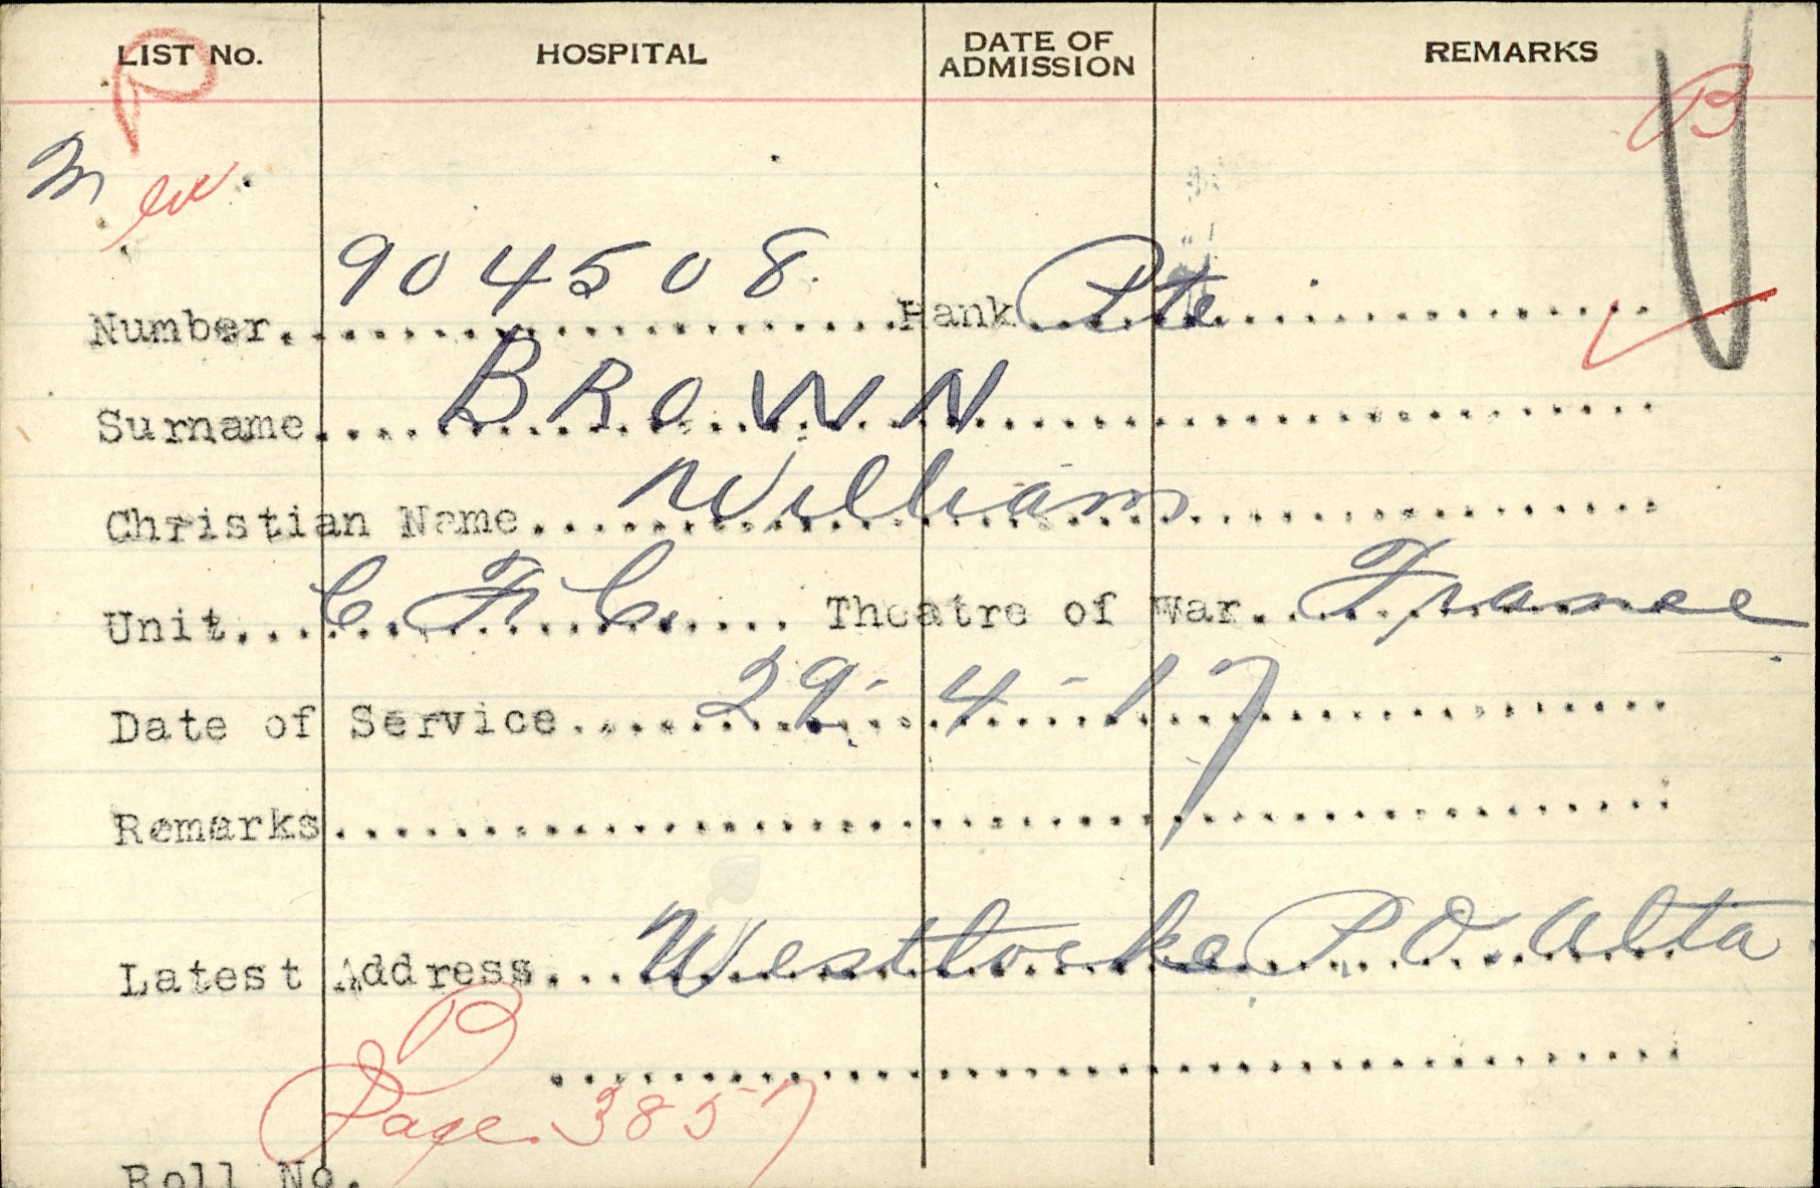 LIST No. HOSPITAL DATE OF ADMISSION REMARKS
P B
M
Number 904508 Rank Pte
Surname BROWN
Christian Name William
Unit C. F. C. Theatre of War France
Date of Service 29-4-17
Remarks
Latest Address Westlocke P.O. Alta
P
Page 3857
Roll No.